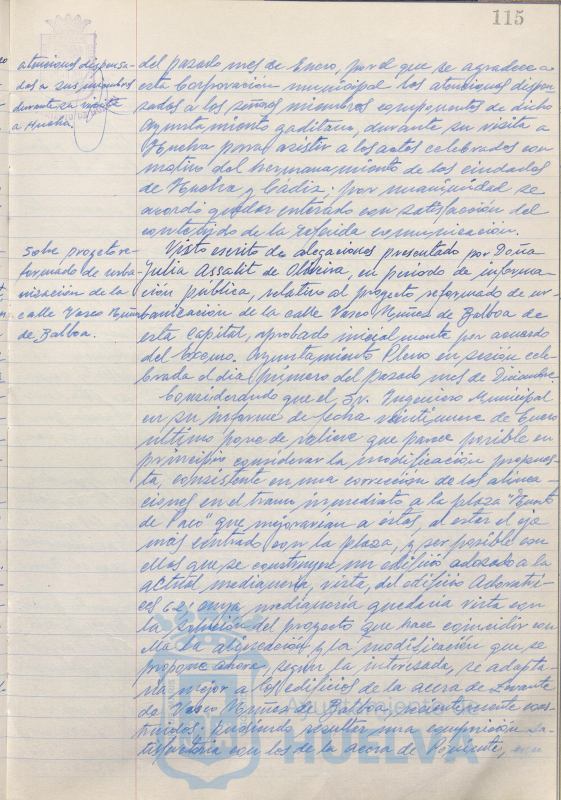 115
atenciones dispensa-
das a sus miembros
durante su visita
a Huelva.
del pasado mes de Enero, por el que se agradece a
esta Corporación municipal las atenciones dispen-
sadas a los señores miembros componentes de dicho
Ayuntamiento gaditano, durante su visita a
Huelva para asistir a los actos celebrados con
motivo del hermanamiento de las ciudades
de Huelva y Cádiz; por unanimidad se
acordó quedar enterado con satisfacción del
contenido de la referida comunicación.
Sobre proyecto re-
formado de urba-
nización de la
calle Vasco Núñez
de Balboa.
Visto escrito de alegaciones presentado por Doña
Julia Assalit de Oliveira, en periodo de informa-
ción pública, relativo al proyecto reformado de ur-
banización de la calle Vasco Núñez de Balboa de
esta Capital, aprobado inicialmente por acuerdo
del Excmo. Ayuntamiento Pleno en sesión cele-
brada el día primero del pasado mes de Diciembre.
Considerando que el Sr. Ingeniero Municipal
en su informe de fecha veintinueve de Enero
último pone de relieve que parece posible en
principio considerar la modificación propues-
ta, consistente en una corrección de las alinea-
ciones en el tramo inmediato a la plaza "Punto
de Paco" que mejorarían a éstas, al estar el eje
más centrado con la plaza, y ser posible con
ellas que se construyera un edificio adosado a la
actual medianería, vista, del edificio Adoratri-
ces 62, cuya medianería quedaría vista con
la solución del proyecto que hace coincidir con
ella la alineación y la modificación que se
propone ahora, según la interesada, se adapta-
ría mejor a los edificios de la acera de Levante
de Vasco Núñez de Balboa, recientemente cons-
truidos; pudiendo resultar una composición sa-
tisfactoria con los de la acera de Poniente,
HUELVA